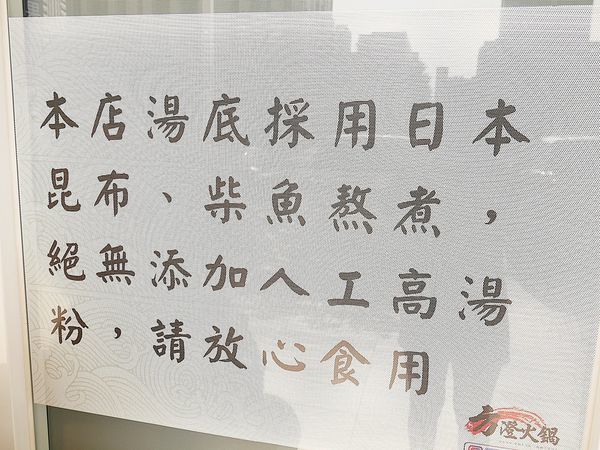 本店湯底採用日本
昆布、柴魚熬煮，
絕無添加人工高湯
粉，請放心食用
方澄火鍋